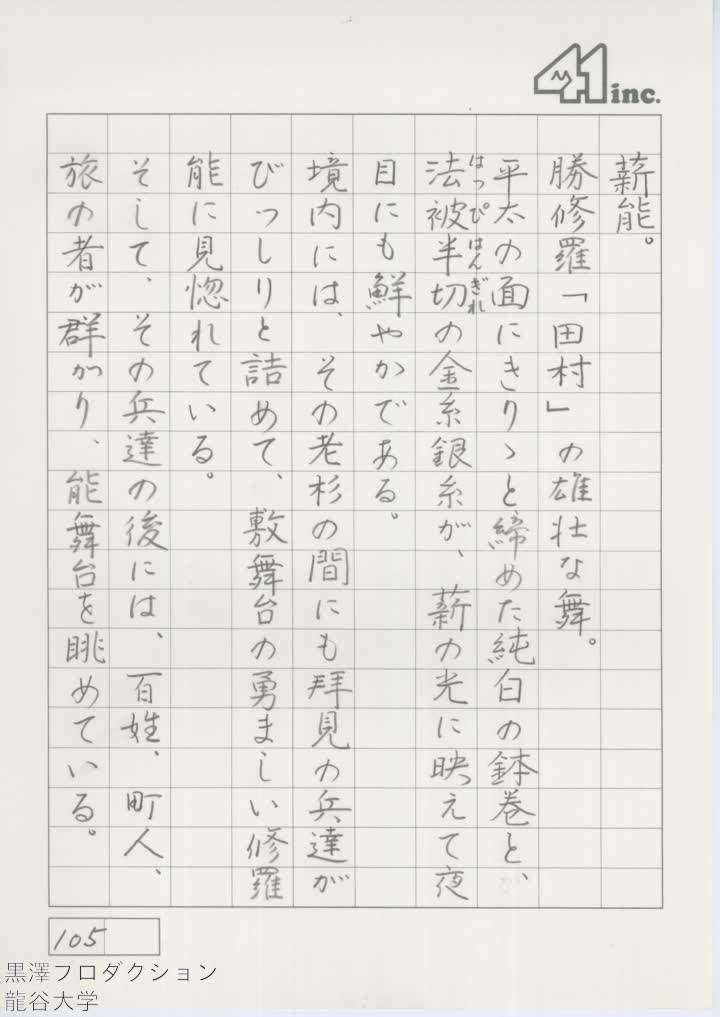 41 inc.
薪能。
勝修羅「田村」の雄壮な舞。
平太の面にきりゝと締めた純白の鉢巻と、
法被半切の金糸銀糸が、薪の光に映えて夜
はっぴ はんぎれ
目にも鮮やかである。
境内には、その老杉の間にも拝見の兵達が
びっしりと詰めて、敷舞台の勇ましい修羅
能に見惚れている。
そして、その兵達の後には、百姓、町人、
旅の者が群がり、能舞台を眺めている。
105
黒澤フロダクション
龍谷大学